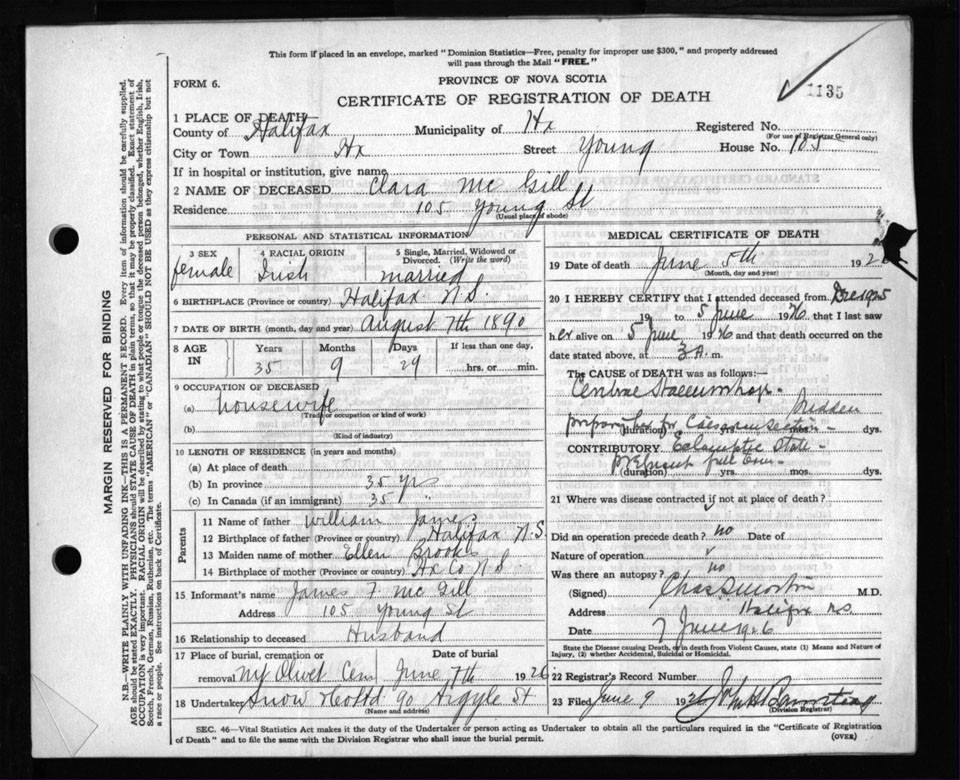 This form if placed in an envelope, marked "Dominion Statistics—Free, penalty for improper use $300," and properly addressed
will pass through the Mail "FREE."
FORM 6.
PROVINCE OF NOVA SCOTIA
CERTIFICATE OF REGISTRATION OF DEATH
1135
1 PLACE OF DEATH
County of Halifax Municipality of Hx Registered No.
(For use of Registrar General only)
City or Town Hx Street Young House No. 105
If in hospital or institution, give name
2 NAME OF DECEASED Clara Mc Gill
Residence 105 Young St
(Usual place of abode)
PERSONAL AND STATISTICAL INFORMATION
3 SEX 4 RACIAL ORIGIN 5 Single, Married, Widowed or
Divorced. (Write the word)
female Irish married
6 BIRTHPLACE (Province or country) Halifax N.S.
7 DATE OF BIRTH (month, day and year) August 7th 1890
8 AGE IN Years Months Days If less than one day,
35 9 29 hrs. or min.
9 OCCUPATION OF DECEASED
(a) housewife
(Trade or occupation or kind of work)
(b)
(Kind of industry)
10 LENGTH OF RESIDENCE (in years and months)
(a) At place of death
(b) In province 35 yrs
(c) In Canada (if an immigrant) 35 "
Parents
11 Name of father William James
12 Birthplace of father (Province or country) Halifax N.S.
13 Maiden name of mother Ellen Brooks
14 Birthplace of mother (Province or country) Hx Co N S
15 Informant's name James F. Mc Gill
Address 105 Young St
16 Relationship to deceased Husband
17 Place of burial, cremation or Date of burial
removal Mt Olivet Cem June 7th 1926
18 Undertaker Snow & Co Ltd 90 Argyle St
(Name and address)
MEDICAL CERTIFICATE OF DEATH
19 Date of death June 5th 192
(Month, day and year)
20 I HEREBY CERTIFY that I attended deceased from Dec 1925
19 to 5 June 1926 that I last saw
her alive on 5 June 1926 and that death occurred on the
date stated above, at 3 A. m.
The CAUSE OF DEATH was as follows:
Cerebral Haemorrhage - Sudden
preparing for Caesarian Section
(duration) yrs. mos. dys.
CONTRIBUTORY Eclamptic State -
pregnant full term -
(duration) yrs. mos. dys.
21 Where was disease contracted if not at place of death?
Did an operation precede death? no Date of
Nature of operation
Was there an autopsy? no
(Signed) M.D.
Address Halifax NS
Date 7 June 1926
State the Disease causing Death, or in death from Violent Causes, state (1) Means and Nature of
Injury, (2) whether Accidental, Suicidal or Homicidal.
22 Registrar's Record Number
23 Filed June 9 1926
(Division Registrar)
SEC. 46—Vital Statistics Act makes it the duty of the Undertaker or person acting as Undertaker to obtain all the particulars required in the "Certificate of Registration
of Death" and to file the same with the Division Registrar who shall issue the burial permit. (OVER)
MARGIN RESERVED FOR BINDING
N.B.—WRITE PLAINLY WITH UNFADING INK—THIS IS A PERMANENT RECORD. Every item of information should be carefully supplied.
AGE should be stated EXACTLY. PHYSICIANS should STATE CAUSE OF DEATH in plain terms, so that it may be properly classified. Exact statement of
OCCUPATION is very important. RACIAL ORIGIN will be described by stating to what people or tongue the deceased person belonged, whether English, Irish,
Scotch, French, German, Russian, Ruthenian, etc. The terms "AMERICAN" or "CANADIAN" SHOULD NOT BE USED as they express citizenship but not
a race or people. See instructions on back of Certificate.